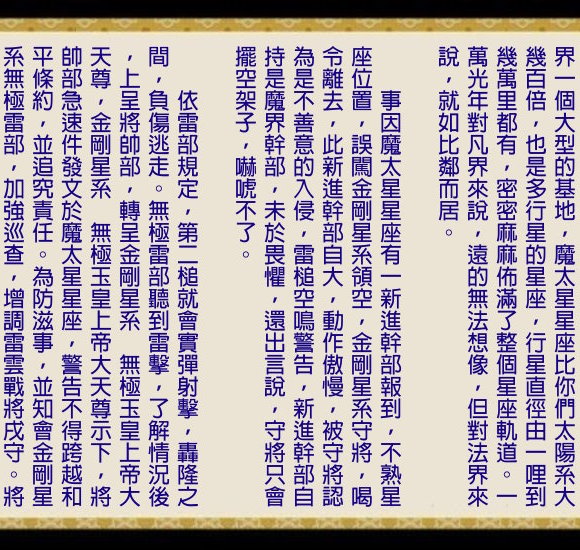 界一個大型的基地，魔太星星座比你們太陽系大
幾百倍，也是多行星的星座，行星直徑由一哩到
幾萬里都有，密密麻麻佈滿了整個星座軌道。一
萬光年對凡界來說，遠的無法想像，但對法界來
說，就如比鄰而居。
事因魔太星星座有一新進幹部報到，不熟星
座位置，誤闖金剛星系領空，金剛星系守將，喝
令離去，此新進幹部自大，動作傲慢，被守將認
為是不善意的入侵，雷槌空鳴警告，新進幹部自
持是魔界幹部，未於畏懼，還出言說，守將只會
擺空架子，嚇唬不了。
依雷部規定，第二槌就會實彈射擊，轟隆之
間，負傷逃走。無極雷部聽到雷擊，了解情況後
，上呈將帥部，轉呈金剛星系　無極玉皇上帝大
天尊，金剛星系　無極玉皇上帝大天尊示下，將
帥部急速件發文於魔太星星座，警告不得跨越和
平條約，並追究責任。為防滋事，並知會金剛星
系無極雷部，加強巡查，增調雷雲戰將戍守。將